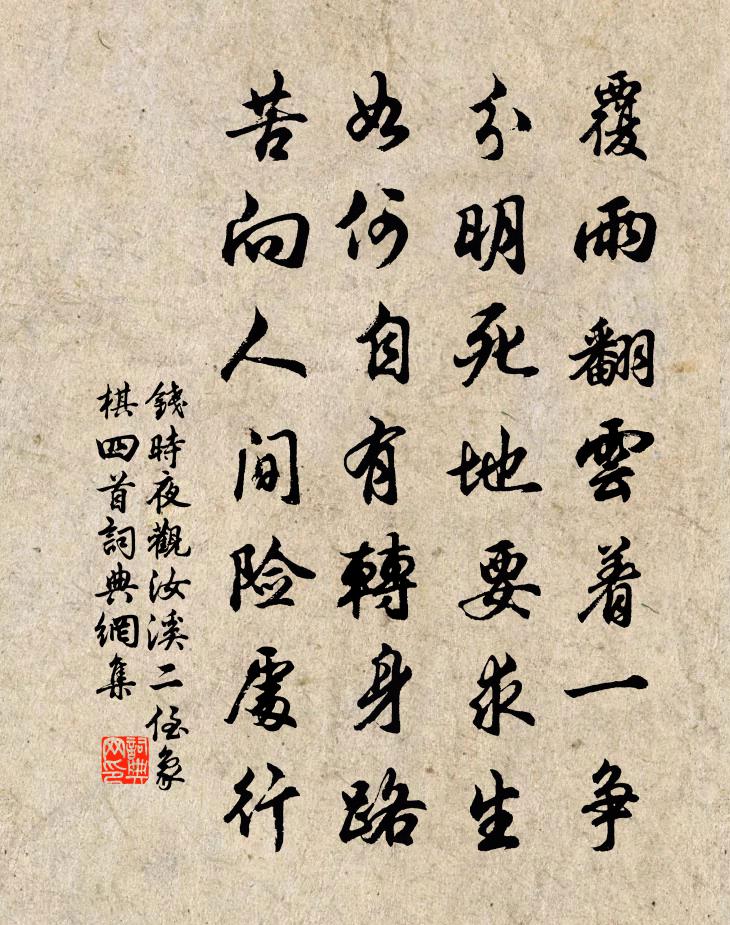 覆雨翻雲着一争
分明死地要求生
如何自有轉身路
苦向人间险處行
錢時夜觀汝溪二侄象
棋四首詞典網集
詞典网印